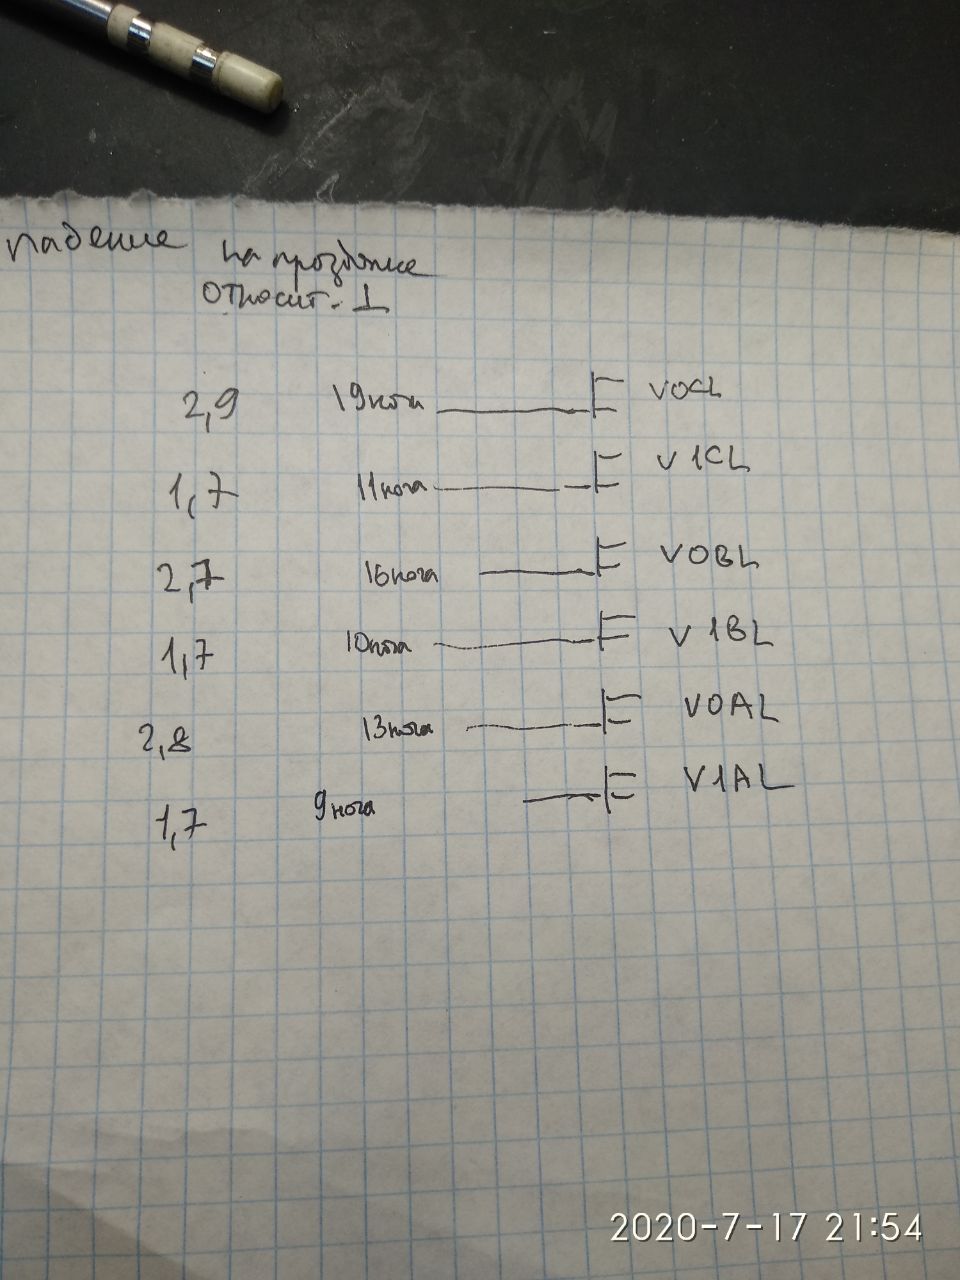 падение на прозвонке
относит. ⊥
2,9 19 нога V0CL
1,7 11 нога V1CL
2,7 16 нога V0BL
1,7 10 нога V1BL
2,8 13 нога V0AL
1,7 9 нога V1AL
2020-7-17 21:54